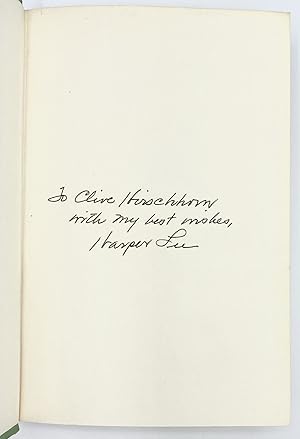 To Clive Hirschhorn
with my best wishes,
Harper Lee